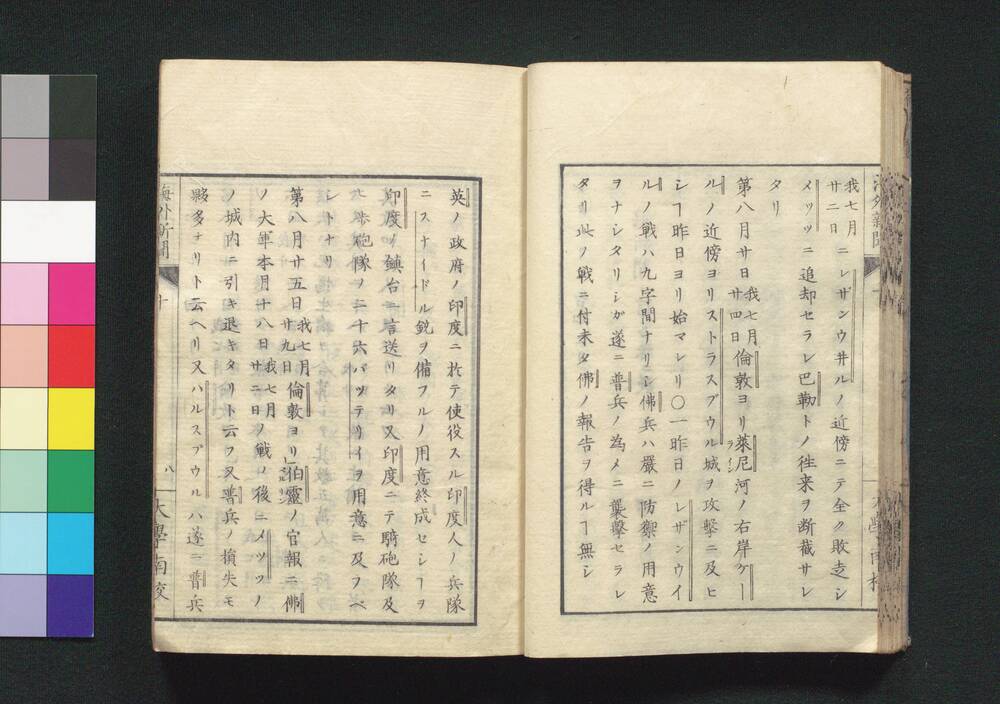 我七月廿二日ニレザンウ井ルノ近傍ニテ全ク敗走シ
メッツニ追却セラレ巴勒トノ徃来ヲ断截サレ
タリ
第八月廿日我七月廿四日倫敦ヨリ萊尼河ノ右岸ケー
ライン
ルノ近傍ヨリストラスブウル城ヲ攻撃ニ及ヒ
シヿ昨日ヨリ始マレリ〇一昨日ノレザンウイ
ルノ戦ハ九字間ナリシ佛兵ハ嚴ニ防禦ノ用意
ヲナシタリシガ遂ニ普兵ノ為メニ襲撃セラレ
タリ此ノ戦ニ付未タ佛ノ報告ヲ得ルヿ無シ
英ノ政府ノ印度ニ於テ使役スル印度人ノ兵隊
ニスナイドル銃ヲ備フルノ用意終成セシヿヲ
印度ノ鎮台ニ言送リタリ又印度ニテ騎砲隊及
ヒ歩砲隊ヲ二十六バッテリイヲ用意ニ及フベ
シトナリ
第八月廿五日我七月廿九日倫敦ヨリ伯靈ノ官報ニ佛
ノ大軍本月十八日我七月廿二日ノ戦ノ後ニメッツノ
ノ城内ニ引キ退キタリト云フ又普兵ノ損失モ
夥多ナリト云ヘリ又ハルスブウルハ遂ニ普兵
海外新聞
十
八
大學南校